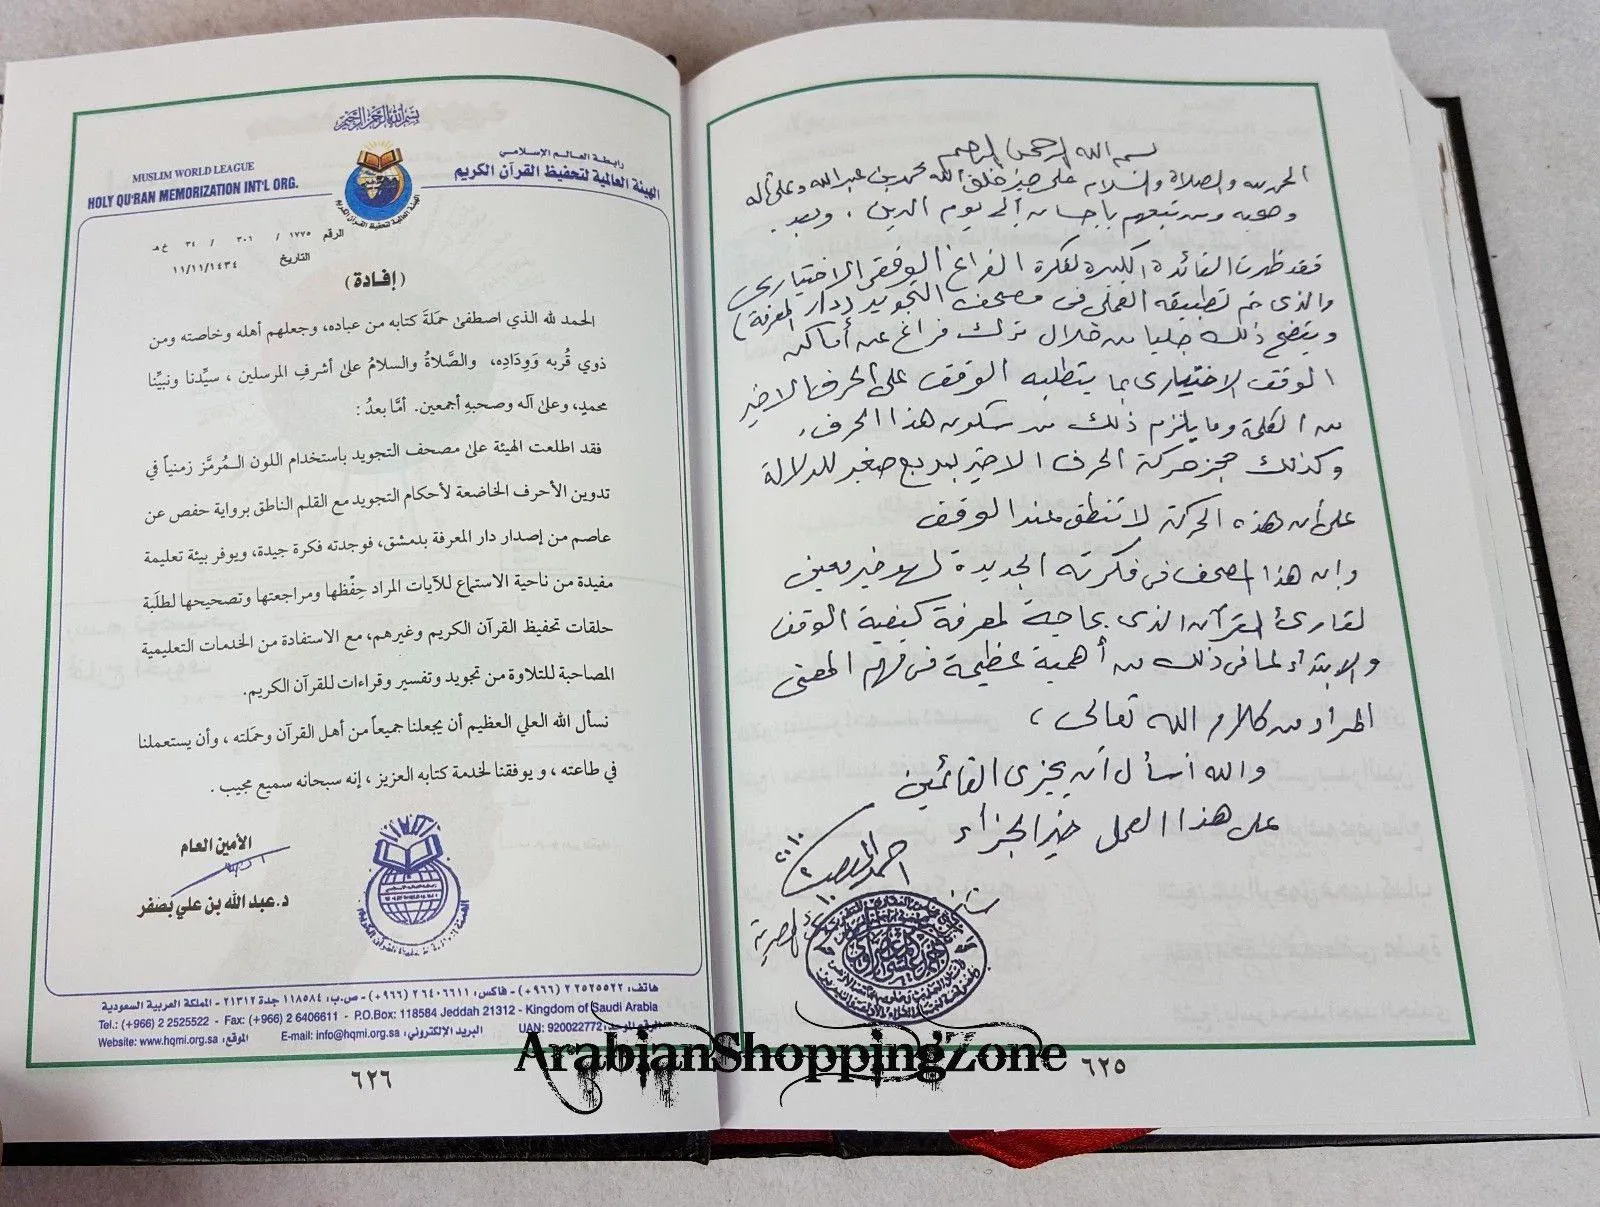 بسم الله الرحمن الرحيم
الحمد لله والصلاة والسلام على خير خلق الله محمد بن عبد الله وعلى آله
وصحبه ومن تبعهم بإحسان إلى يوم الدين . وبعد .
فقد ظهرت الفائدة الكبيرة لفكرة الفراغ الوقفي الاختياري
والذي تم تطبيقه العملي في مصحف التجويد (دار المعرفة)
ويتضح ذلك جليا من خلال ترك فراغ عن أماكن
الوقف الاختياري بما يتطلبه الوقف على الحرف الأخير
من الكلمة وما يلزم ذلك من سكون هذا الحرف .
وكذلك حجز حركة الحرف الأخير بمربع صغير للدلالة
على أن هذه الحركة لا تنطق عند الوقف
وإن هذا المصحف في فكرته الجديدة لهو خير معين
لقارئ القرآن الذي بحاجة لمعرفة كيفية الوقف
والابتداء لما في ذلك من أهمية عظيمة في فهم المعنى
المراد من كلام الله تعالى ،
والله أسأل أن يجزي القائمين
على هذا العمل خير الجزاء
٦٢٥
بسم الله الرحمن الرحيم
رابطة العالم الإسلامي
الهيئة العالمية لتحفيظ القرآن الكريم
MUSLIM WORLD LEAGUE
HOLY QU'RAN MEMORIZATION INT'L ORG.
الهيئة العالمية لتحفيظ القرآن الكريم
الرقم ١٧٧٥ / ٣٠١ / ٣٤ خ هـ
التاريخ ١١/١١/١٤٣٤
(إفادة)
الحمد لله الذي اصطفىٰ حَمَلَةَ كتابه من عباده، وجعلهم أهله وخاصته ومن
ذوي قُربه وَوِدَادِه، والصَّلاةُ والسلامُ علىٰ أشرفِ المرسلين ، سيِّدنا ونبيِّنا
محمدٍ، وعلىٰ آله وصحبهِ أجمعين. أمَّا بعدُ :
فقد اطلعت الهيئة علىٰ مصحف التجويد باستخدام اللون الـمُرمَّز زمنياً في
تدوين الأحرف الخاضعة لأحكام التجويد مع القلم الناطق برواية حفص عن
عاصم من إصدار دار المعرفة بدمشق، فوجدته فكرة جيدة، ويوفر بيئة تعليمة
مفيدة من ناحية الاستماع للآيات المراد حِفْظها ومراجعتها وتصحيحها لطلَبة
حلقات تحفيظ القرآن الكريم وغيرهم، مع الاستفادة من الخدمات التعليمية
المصاحبة للتلاوة من تجويد وتفسير وقراءات للقرآن الكريم.
نسأل الله العلي العظيم أن يجعلنا جميعاً من أهل القرآن وحمَلته ، وأن يستعملنا
في طاعته ، و يوفقنا لخدمة كتابه العزيز ، إنه سبحانه سميع مجيب .
الأمين العام
د.عبد الله بن علي بصفر
هاتف: ٢٥٢٥٥٢٢ ٢ (٩٦٦+) - فاكس: ٦٤٠٦٦١١ ٢ (٩٦٦+) - ص.ب: ١١٨٥٨٤ جدة ٢١٣١٢ - المملكة العربية السعودية
Tel.: (+966) 2 2525522 - Fax: (+966) 2 6406611 - P.O.Box: 118584 Jeddah 21312 - Kingdom of Saudi Arabia
Website: www.hqmi.org.sa الموقع: E-mail: info@hqmi.org.sa البريد الإلكتروني: UAN: 920022772 الرقم الموحد:
٦٢٦
ArabianShoppingZone